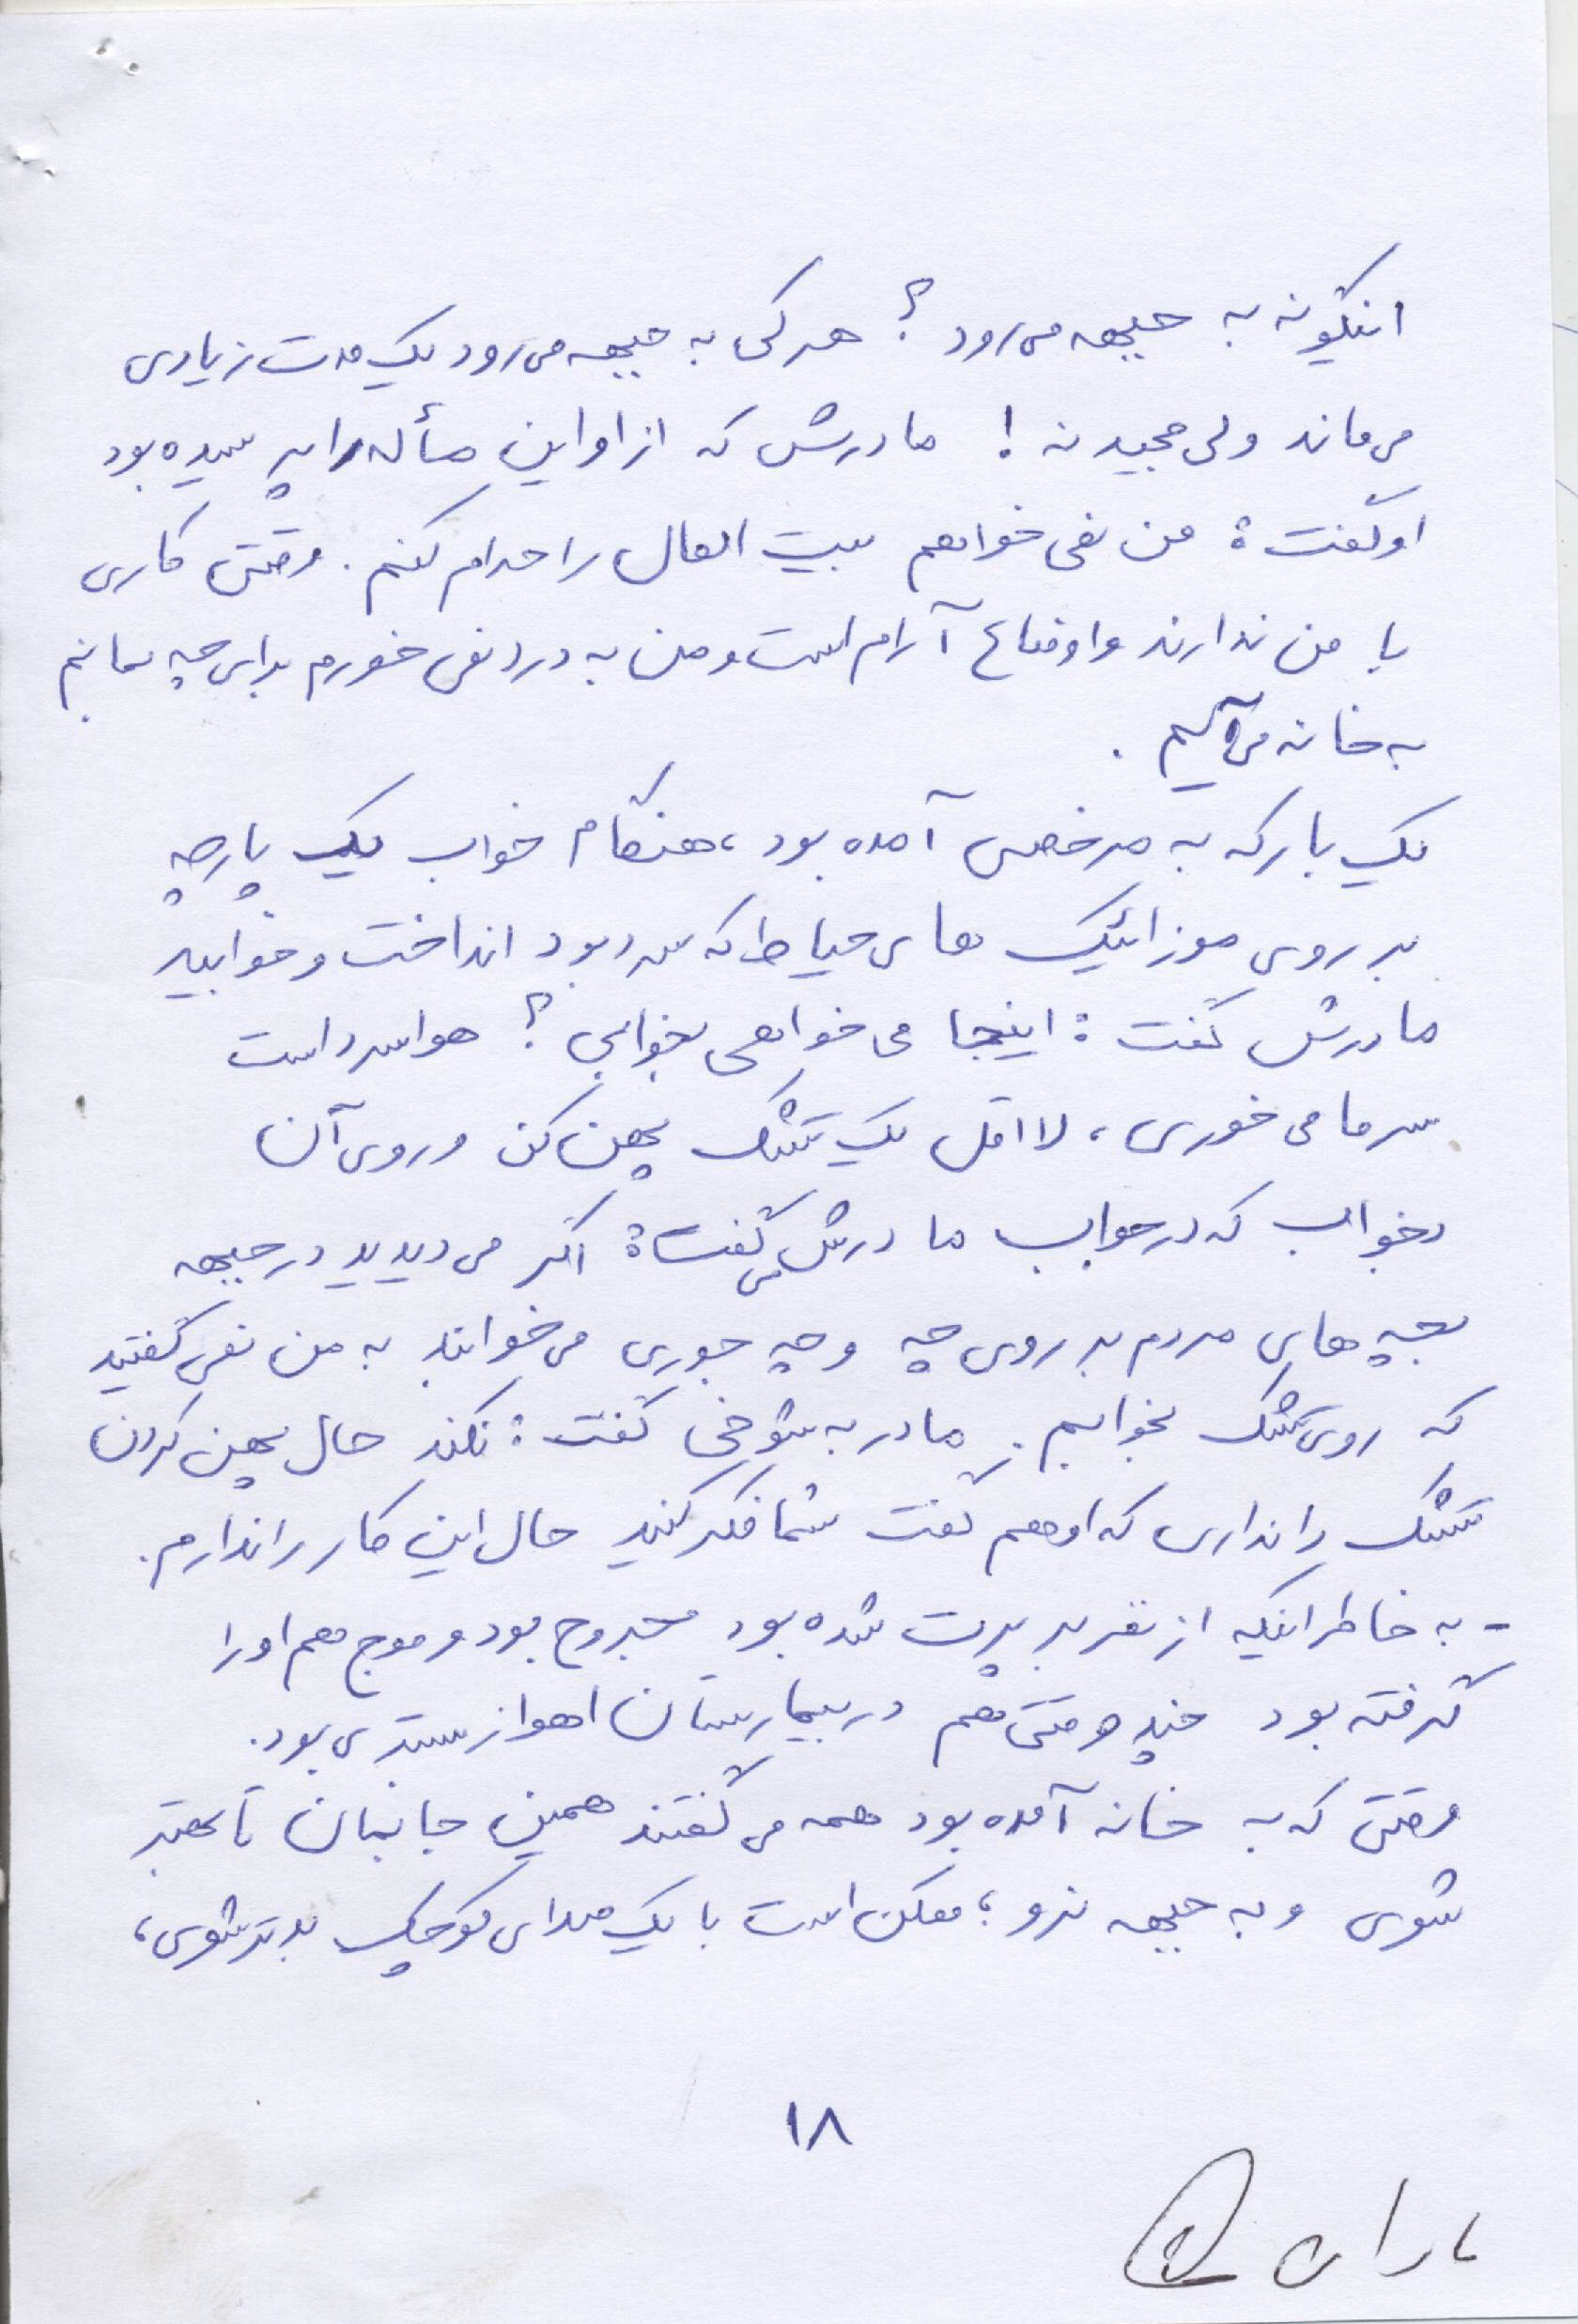 اینگونه به جبهه می‌رود؟ هر کی به جبهه می‌رود یک مدت زیادی
می‌ماند ولی مجید نه! مادرش که از او این مسأله را پرسیده بود
او گفت: من نمی‌خواهم بیت المال را حرام کنم. وقتی کاری
با من ندارند و اوضاع آرام است و من به درد نمی‌خورم برای چه بمانم
به خانه می‌آیم.
یک بار که به مرخصی آمده بود، هنگام خواب یک پارچه
بر روی موزائیک های حیاط که سرد بود انداخت و خوابید
مادرش گفت: اینجا می‌خواهی بخوابی؟ هوا سرد است
سرما می‌خوری، لااقل یک تشک پهن کن و روی آن
بخواب که در جواب مادرش می‌گفت: اگر می‌دیدید در جبهه
بچه های مردم بر روی چه و چه جوری می‌خوابند به من نمی‌گفتید
که روی تشک بخوابم. مادر به شوخی گفت: نکند حال پهن کردن
تشک را نداری که او هم گفت شما فکر کنید حال این کار را ندارم.
- به خاطر اینکه از نفربر پرت شده بود مجروح بود و موج هم او را
گرفته بود چند وقتی هم در بیمارستان اهواز بستری بود.
وقتی که به خانه آمده بود همه می‌گفتند همین جا بمان تا بهتر
شوی و به جبهه نرو؛ ممکن است با یک صدای کوچک بدتر شوی،
۱۸